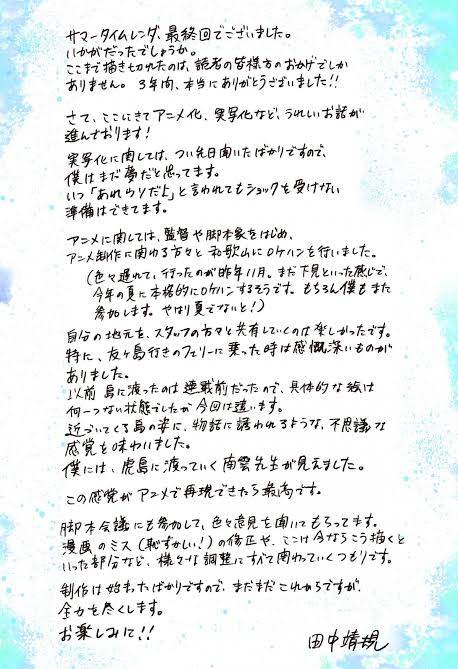 サマータイムレンダ、最終回でございました。
いかがだったでしょうか。
ここまで描ききれたのは、読者の皆様方のおかげでしか
ありません。3年間、本当にありがとうございました!!
さて、ここにきてアニメ化、実写化など、うれしいお話が
進んでおります!
実写化に関しては、つい先日聞いたばかりですので、
僕はまだ夢だと思ってます。
いつ「あれウソだよ」と言われてもショックを受けない
準備はできてます。
アニメに関しては、監督や脚本家をはじめ、
アニメ制作に関わる方々と和歌山にロケハンを行いました。
(色々遅れて、行ったのが昨年11月。まだ下見といった感じで、
今年の夏に本格的にロケハンするそうです。もちろん僕もまた
参加します。やはり夏でないと!)
自分の地元を、スタッフの方々と共有していくのは楽しかったです。
特に、友ヶ島行きのフェリーに乗った時は感慨深いものが
ありました。
以前島に渡ったのは連載前だったので、具体的な絵は
何一つない状態でしたが今回は違います。
近づいてくる島の姿に、物語に誘われるような、不思議な
感覚を味わいました。
僕には、虎島に渡っていく南雲先生が見えました。
この感覚がアニメで再現できたら最高です。
脚本会議にも参加して、色々意見を聞いてもらってます。
漫画のミス(恥ずかしい!)の修正や、ここは今ならこう描くと
いった部分など、様々な調整にすべて関わっていくつもりです。
制作は始まったばかりですので、まだまだこれからですが、
全力を尽くします。
お楽しみに!!
田中靖規